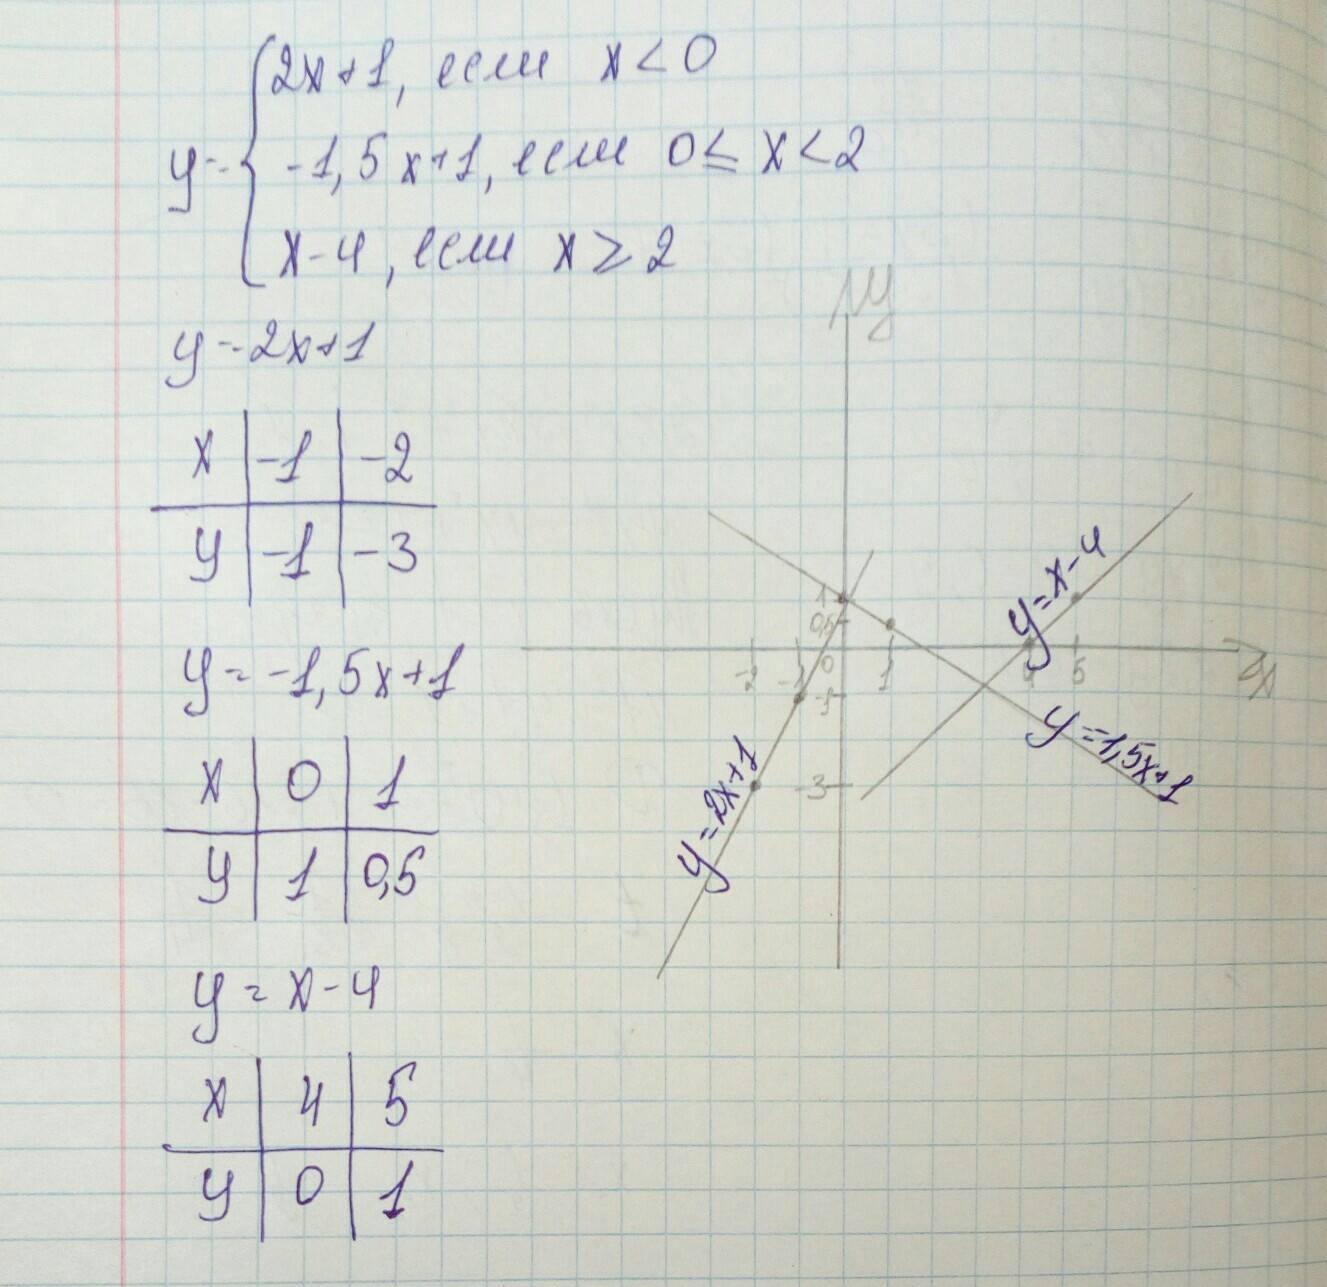 y = { 2x+1, если x < 0
-1,5x+1, если 0 ≤ x < 2
x-4, если x ≥ 2
y = 2x+1
x | -1 | -2
y | -1 | -3
y = -1,5x+1
x | 0 | 1
y | 1 | 0,5
y = x-4
x | 4 | 5
y | 0 | 1
y
1
0,5
-2 -1 0 1 4 5 x
-1
-3
y = x-4
y = 1,5x+1
y = 2x+1